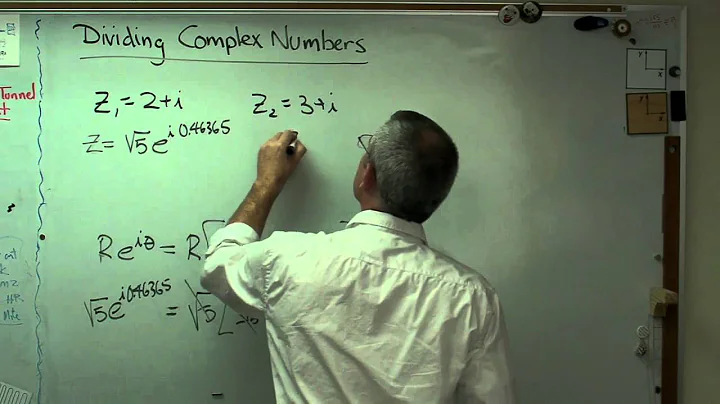 Dividing Complex Numbers
Z₁ = 2+i Z₂ = 3+i
Z = √5 e^{i 0.46365}
Re^{iθ} = R
√5 e^{i0.46365} = √5 [
Tunnel